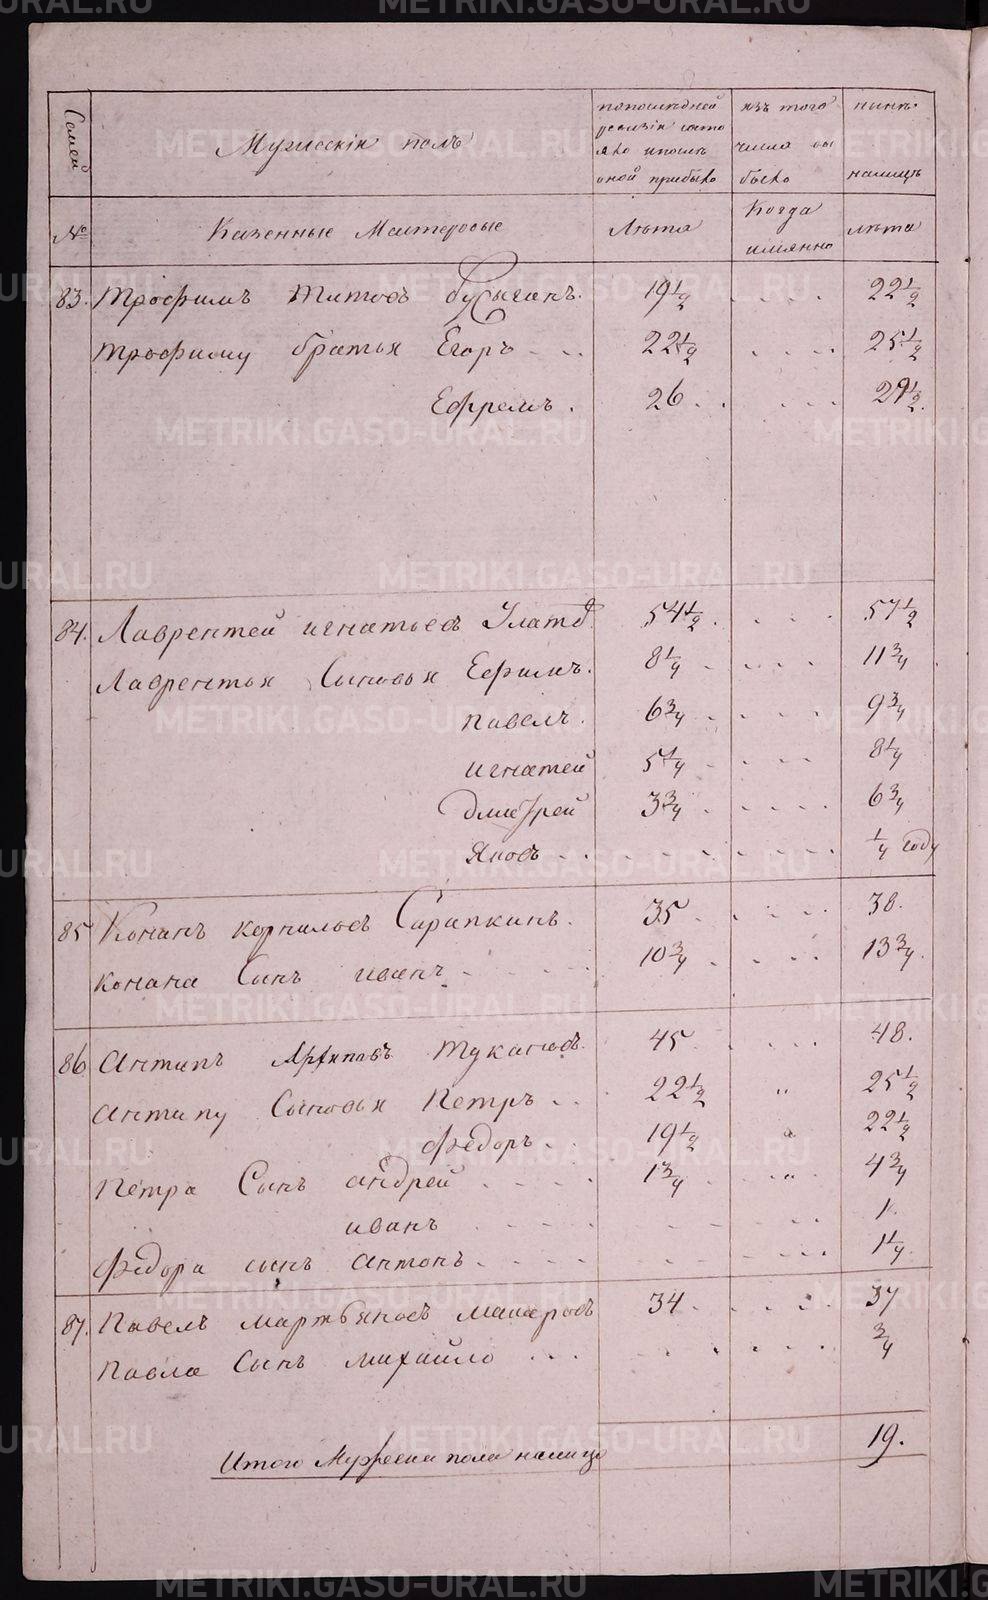 Семей
Мужескій полъ
попоследней
ревизіи состо
яло ипосле
оной прибыло
изъ того
числа вы
было
ныне
налицъ
№
Казенные Мастеровые
Лѣта
Когда
имянно
лѣта
83. Трофимъ Титовъ Бусыгинъ. 19½ . . . . 22½
Трофиму братья Егоръ . . . 22½ . . . . 25½
Ефремъ . 26 . . . . . 29½.
84. Лаврентей игнатьевъ 54½ . . . . 57½
Лаврентья Сыновья Ефимъ. 8¼ . . . . 11¾
павелъ. 6¾ . . . . 9¾
игнатей 5¼ . . . . 8¼
Дмитрей 3¾ . . . . 6¾
Яковъ . . . . . . . . . ¼ году
85 Кононъ корниловъ Сарапкинъ. 35 . . . . 38.
Конона Сынъ иванъ . . . . 10¾ . . . . 13¾.
86 Антипъ Архиповъ Тукановъ. 45 . . . . 48.
Антипу Сыновья Петръ . . . 22½ „ 25½
Федоръ . . . 19½ „ 22½
Петра Сынъ андрей . . . . 1¾ „ 4¾
иванъ . . . . . . . . 1.
Федора сынъ антонъ . . . . . . . . 1¼.
87. Павелъ мартьяновъ макаровъ 34 . . . . 37
Павла Сынъ михайло . . . . . . . . ¾
Итого Мужеска пола налицо 19.
METRIKI.GASO-URAL.RU